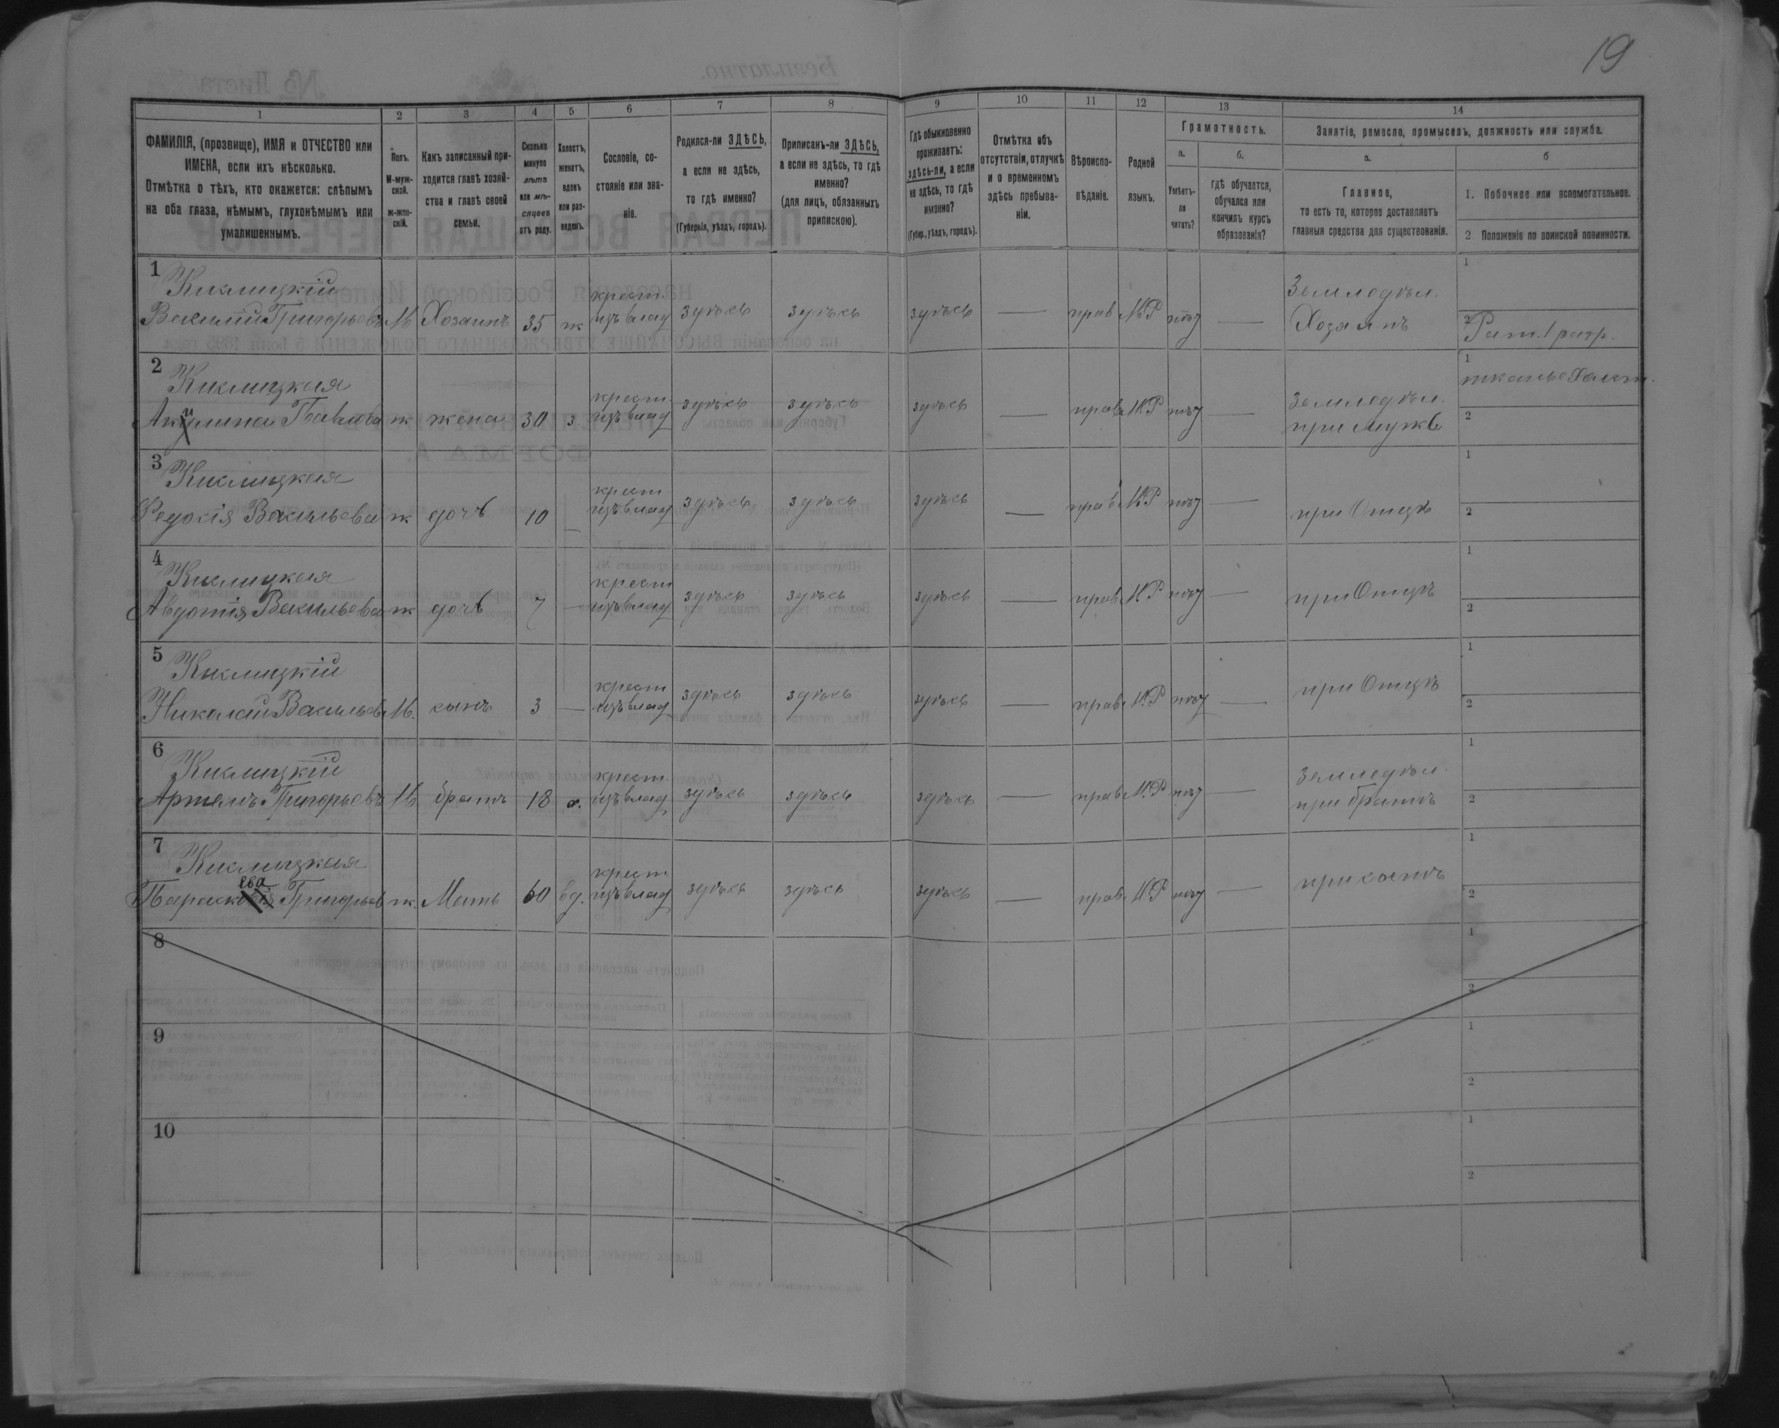 19
1 2 3 4 5 6 7 8 9 10 11 12 13 14
ФАМИЛІЯ, (прозвище), ИМЯ и ОТЧЕСТВО или
ИМЕНА, если ихъ нѣсколько.
Отмѣтка о тѣхъ, кто окажется: слѣпымъ
на оба глаза, нѣмымъ, глухонѣмымъ или
умалишеннымъ.
Полъ.
М-муж-
ской.
ж-жен-
скій.
Какъ записанный при-
ходится главѣ хозяй-
ства и главѣ своей
семьи.
Сколько
минуло
лѣтъ
или мѣ-
сяцевъ
отъ роду.
Холостъ,
женатъ,
вдовъ
или раз-
веденъ.
Сословіе, со-
стояніе или зва-
ніе.
Родился-ли ЗДѢСЬ,
а если не здѣсь,
то гдѣ именно?
(Губернія, уѣздъ, городъ).
Приписанъ-ли ЗДѢСЬ,
а если не здѣсь, то гдѣ
именно?
(для лицъ, обязанныхъ
припискою).
Гдѣ обыкновенно
проживаетъ:
здѣсь-ли, а если
не здѣсь, то гдѣ
именно?
(Губер., уѣздъ, городъ).
Отмѣтка объ
отсутствіи, отлучкѣ
и о временномъ
здѣсь пребыва-
ніи.
Вѣроиспо-
вѣданіе.
Родной
языкъ.
Грамотность.
а.
Умѣетъ-
ли
читать?
б.
Гдѣ обучается,
обучался или
кончилъ курсъ
образованія?
Занятіе, ремесло, промыселъ, должность или служба.
а.
Главное,
то есть то, которое доставляетъ
главныя средства для существованія.
б
1. Побочное или вспомогательное.
2 Положеніе по воинской повинности.
1 Кислицкій крест. Земледѣл. 1
Василій Григорьевъ М Хозяинъ 35 ж изъ влад здѣсь здѣсь здѣсь — прав М.Р нѣт — Хозяинъ 2 Рат. 1 разр.
2 Кислицкая крест Земледѣл. 1
Акулина Павлова ж жена 30 з изъ влад здѣсь здѣсь здѣсь — прав М.Р нѣт — при мужѣ 2
3 Кислицкая крест 1
Федосія Васильева ж дочь 10 — изъ влад здѣсь здѣсь здѣсь — прав М.Р нѣт — при Отцѣ 2
4 Кислицкая крест 1
Авдотія Васильева ж дочь 7 — изъ влад здѣсь здѣсь здѣсь — прав М.Р нѣт — при Отцѣ 2
5 Кислицкій крест 1
Николай Васильев М. сынъ 3 — изъ влад здѣсь здѣсь здѣсь — прав М.Р нѣт — при Отцѣ 2
6 Кислицкій крест земледѣл. 1
Артемъ Григорьевъ М. братъ 18 х. изъ влад здѣсь здѣсь здѣсь — прав М.Р нѣт — при братѣ 2
7 Кислицкая крест 1
Параскева Григорьев ж. Мать 60 вд. изъ влад здѣсь здѣсь здѣсь — прав М.Р нѣт — при сынѣ 2
8 1
2
9 1
2
10 1
2